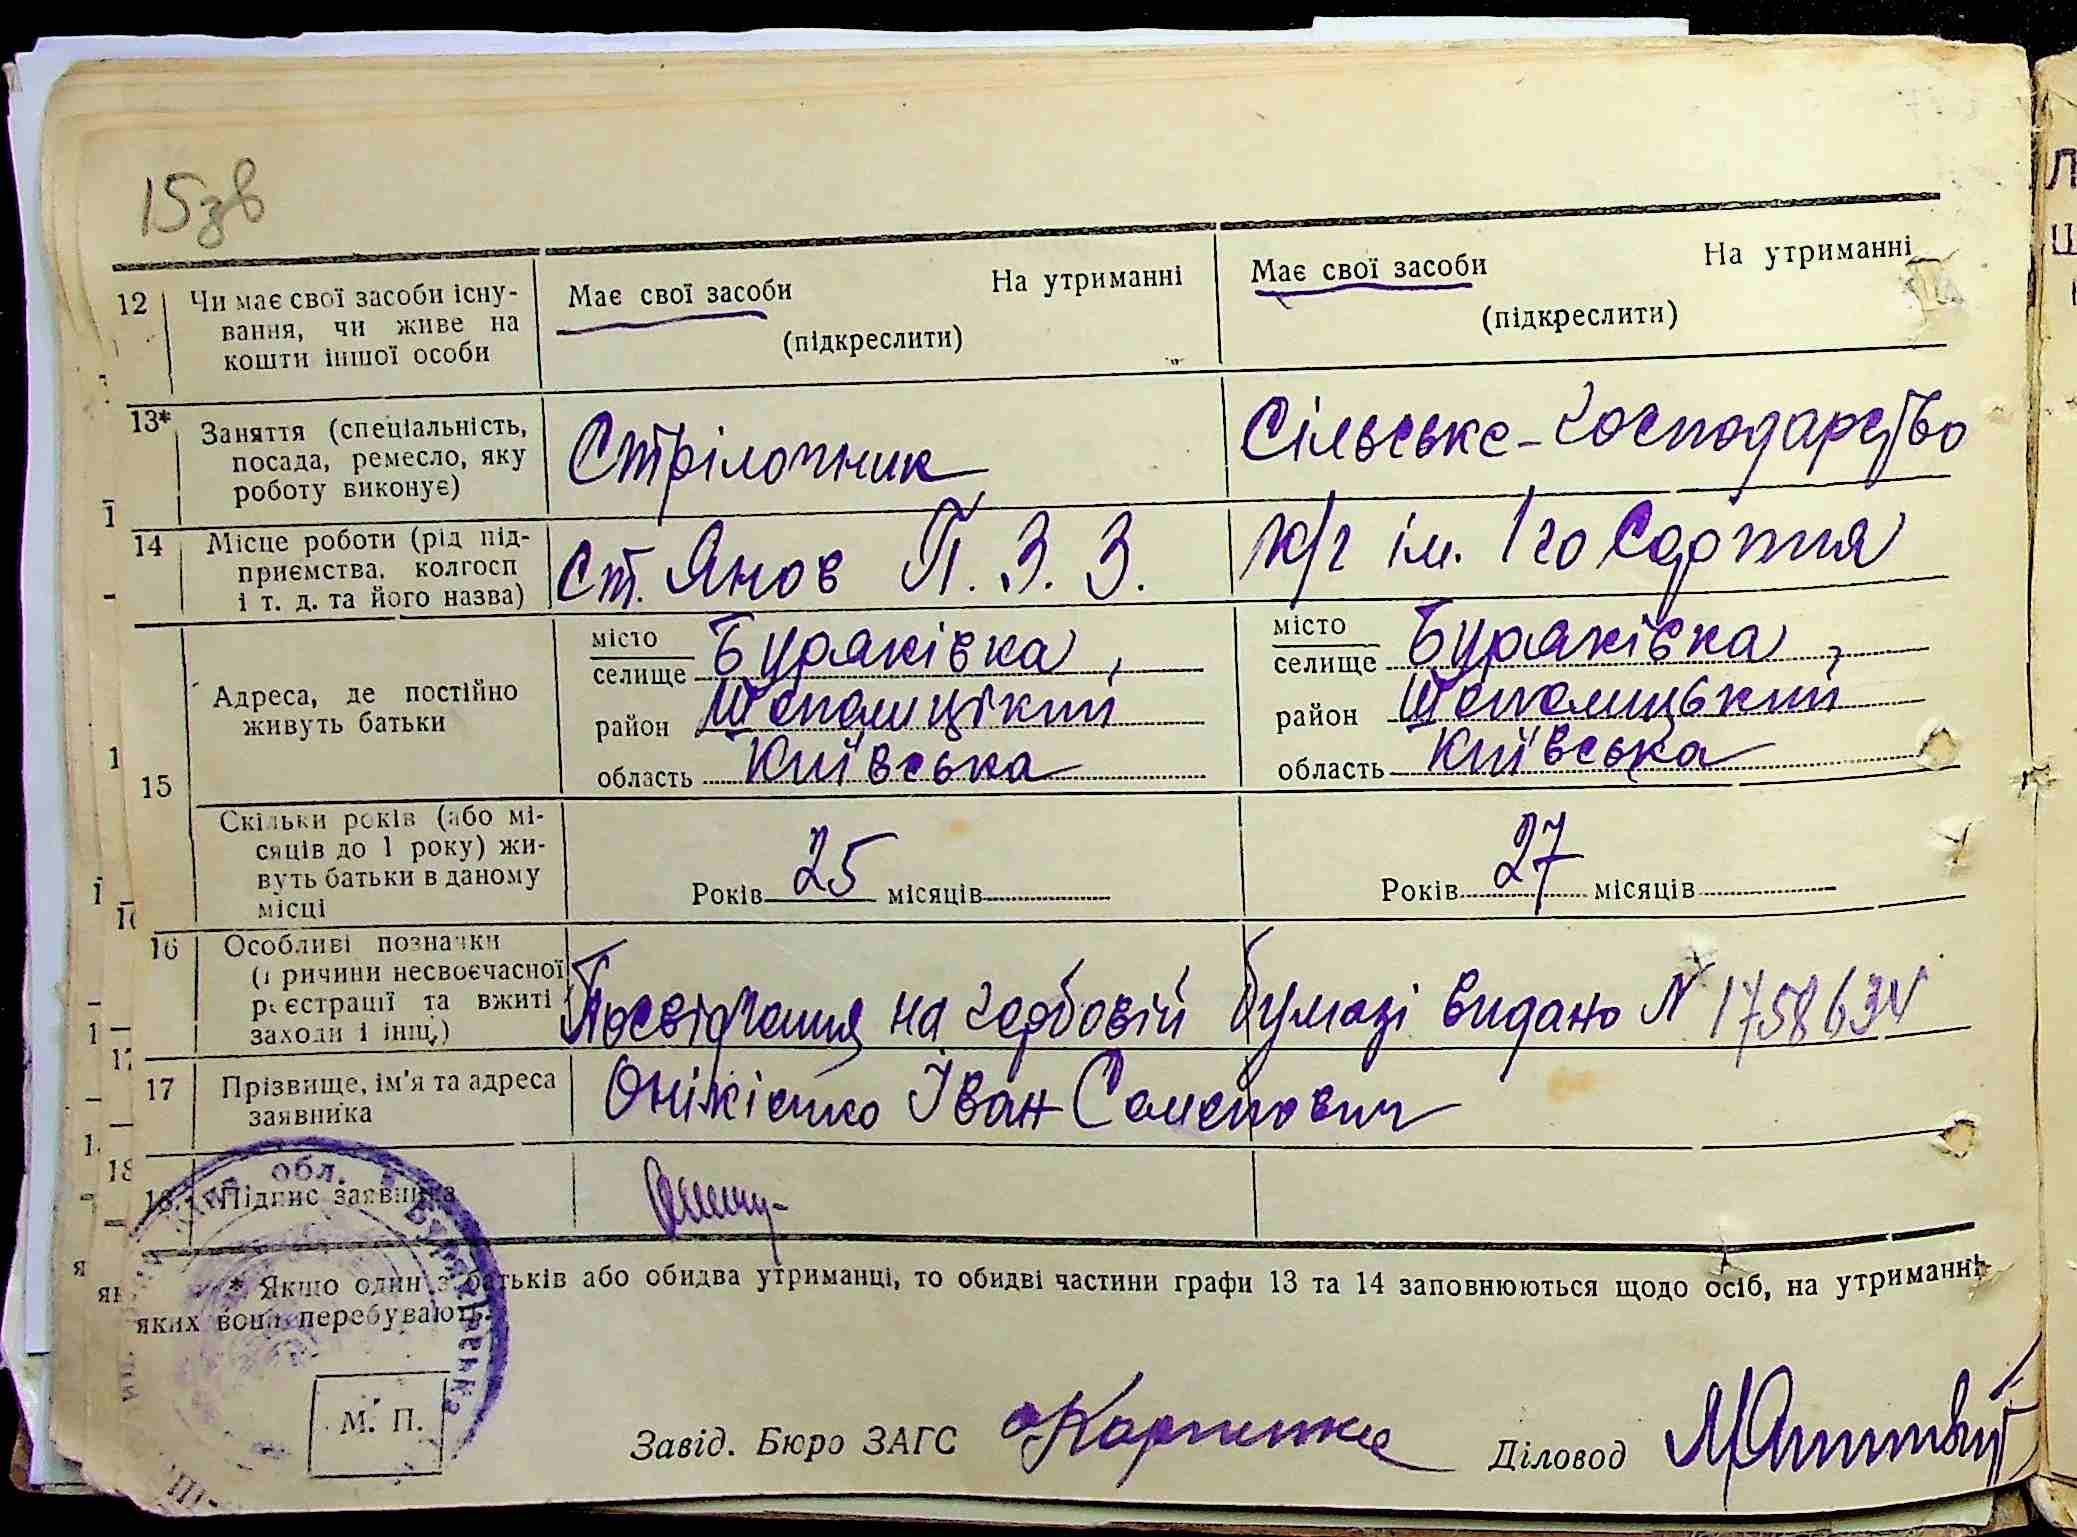 15зв
12 Чи має свої засоби існу- Має свої засоби На утриманні Має свої засоби На утриманні
вання, чи живе на (підкреслити) (підкреслити)
кошти іншої особи
13* Заняття (спеціальність, Стрілочник Сільське-господарство
посада, ремесло, яку
роботу виконує)
14 Місце роботи (рід під- Ст. Янов П. З. З. К/г ім. 1го Серпня
приємства, колгосп
і т. д. та його назва)
15 Адреса, де постійно місто Буряківка, місто Буряківка,
живуть батьки селище селище
район Шепелицький район Шепелицький
область Київська область Київська
Скільки років (або мі-
сяців до 1 року) жи-
вуть батьки в даному Років 25 місяців Років 27 місяців
місці
16 Особливі позначки
(причини несвоєчасної
реєстрації та вжиті Посвідчення на гербовій бумазі видано № 1758634
заходи і інщ.)
17 Прізвище, ім'я та адреса Онікієнко Іван Семенович
заявника
18. Підпис заявника
* Якщо один з батьків або обидва утриманці, то обидві частини графи 13 та 14 заповнюються щодо осіб, на утриманні
яких вони перебувають.
обл. Буряківська
М. П.
Завід. Бюро ЗАГС Карпенко Діловод